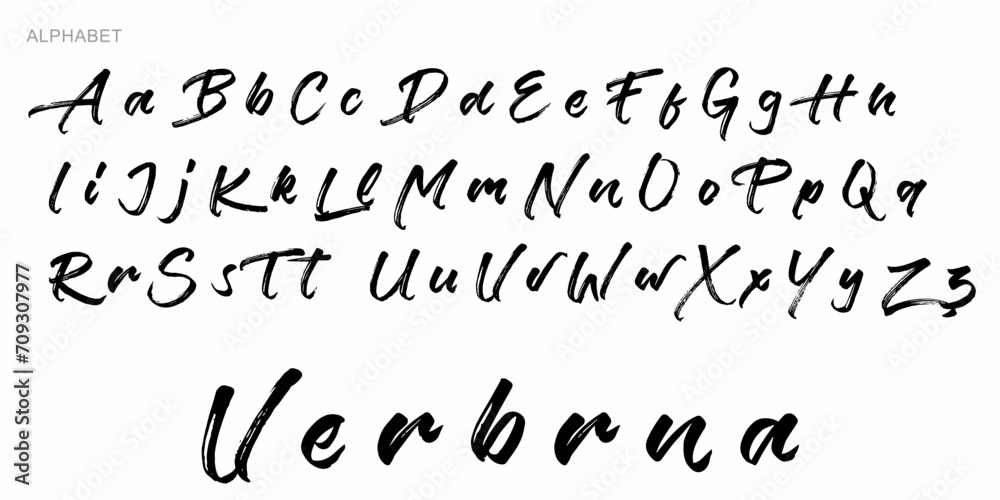 ALPHABET
A a B b C c D d E e F f G g H h
I i J j K k L l M m N n O o P p Q q
R r S s T t U u V v W w X x Y y Z z
Verbrna
Adobe Stock | #709307977